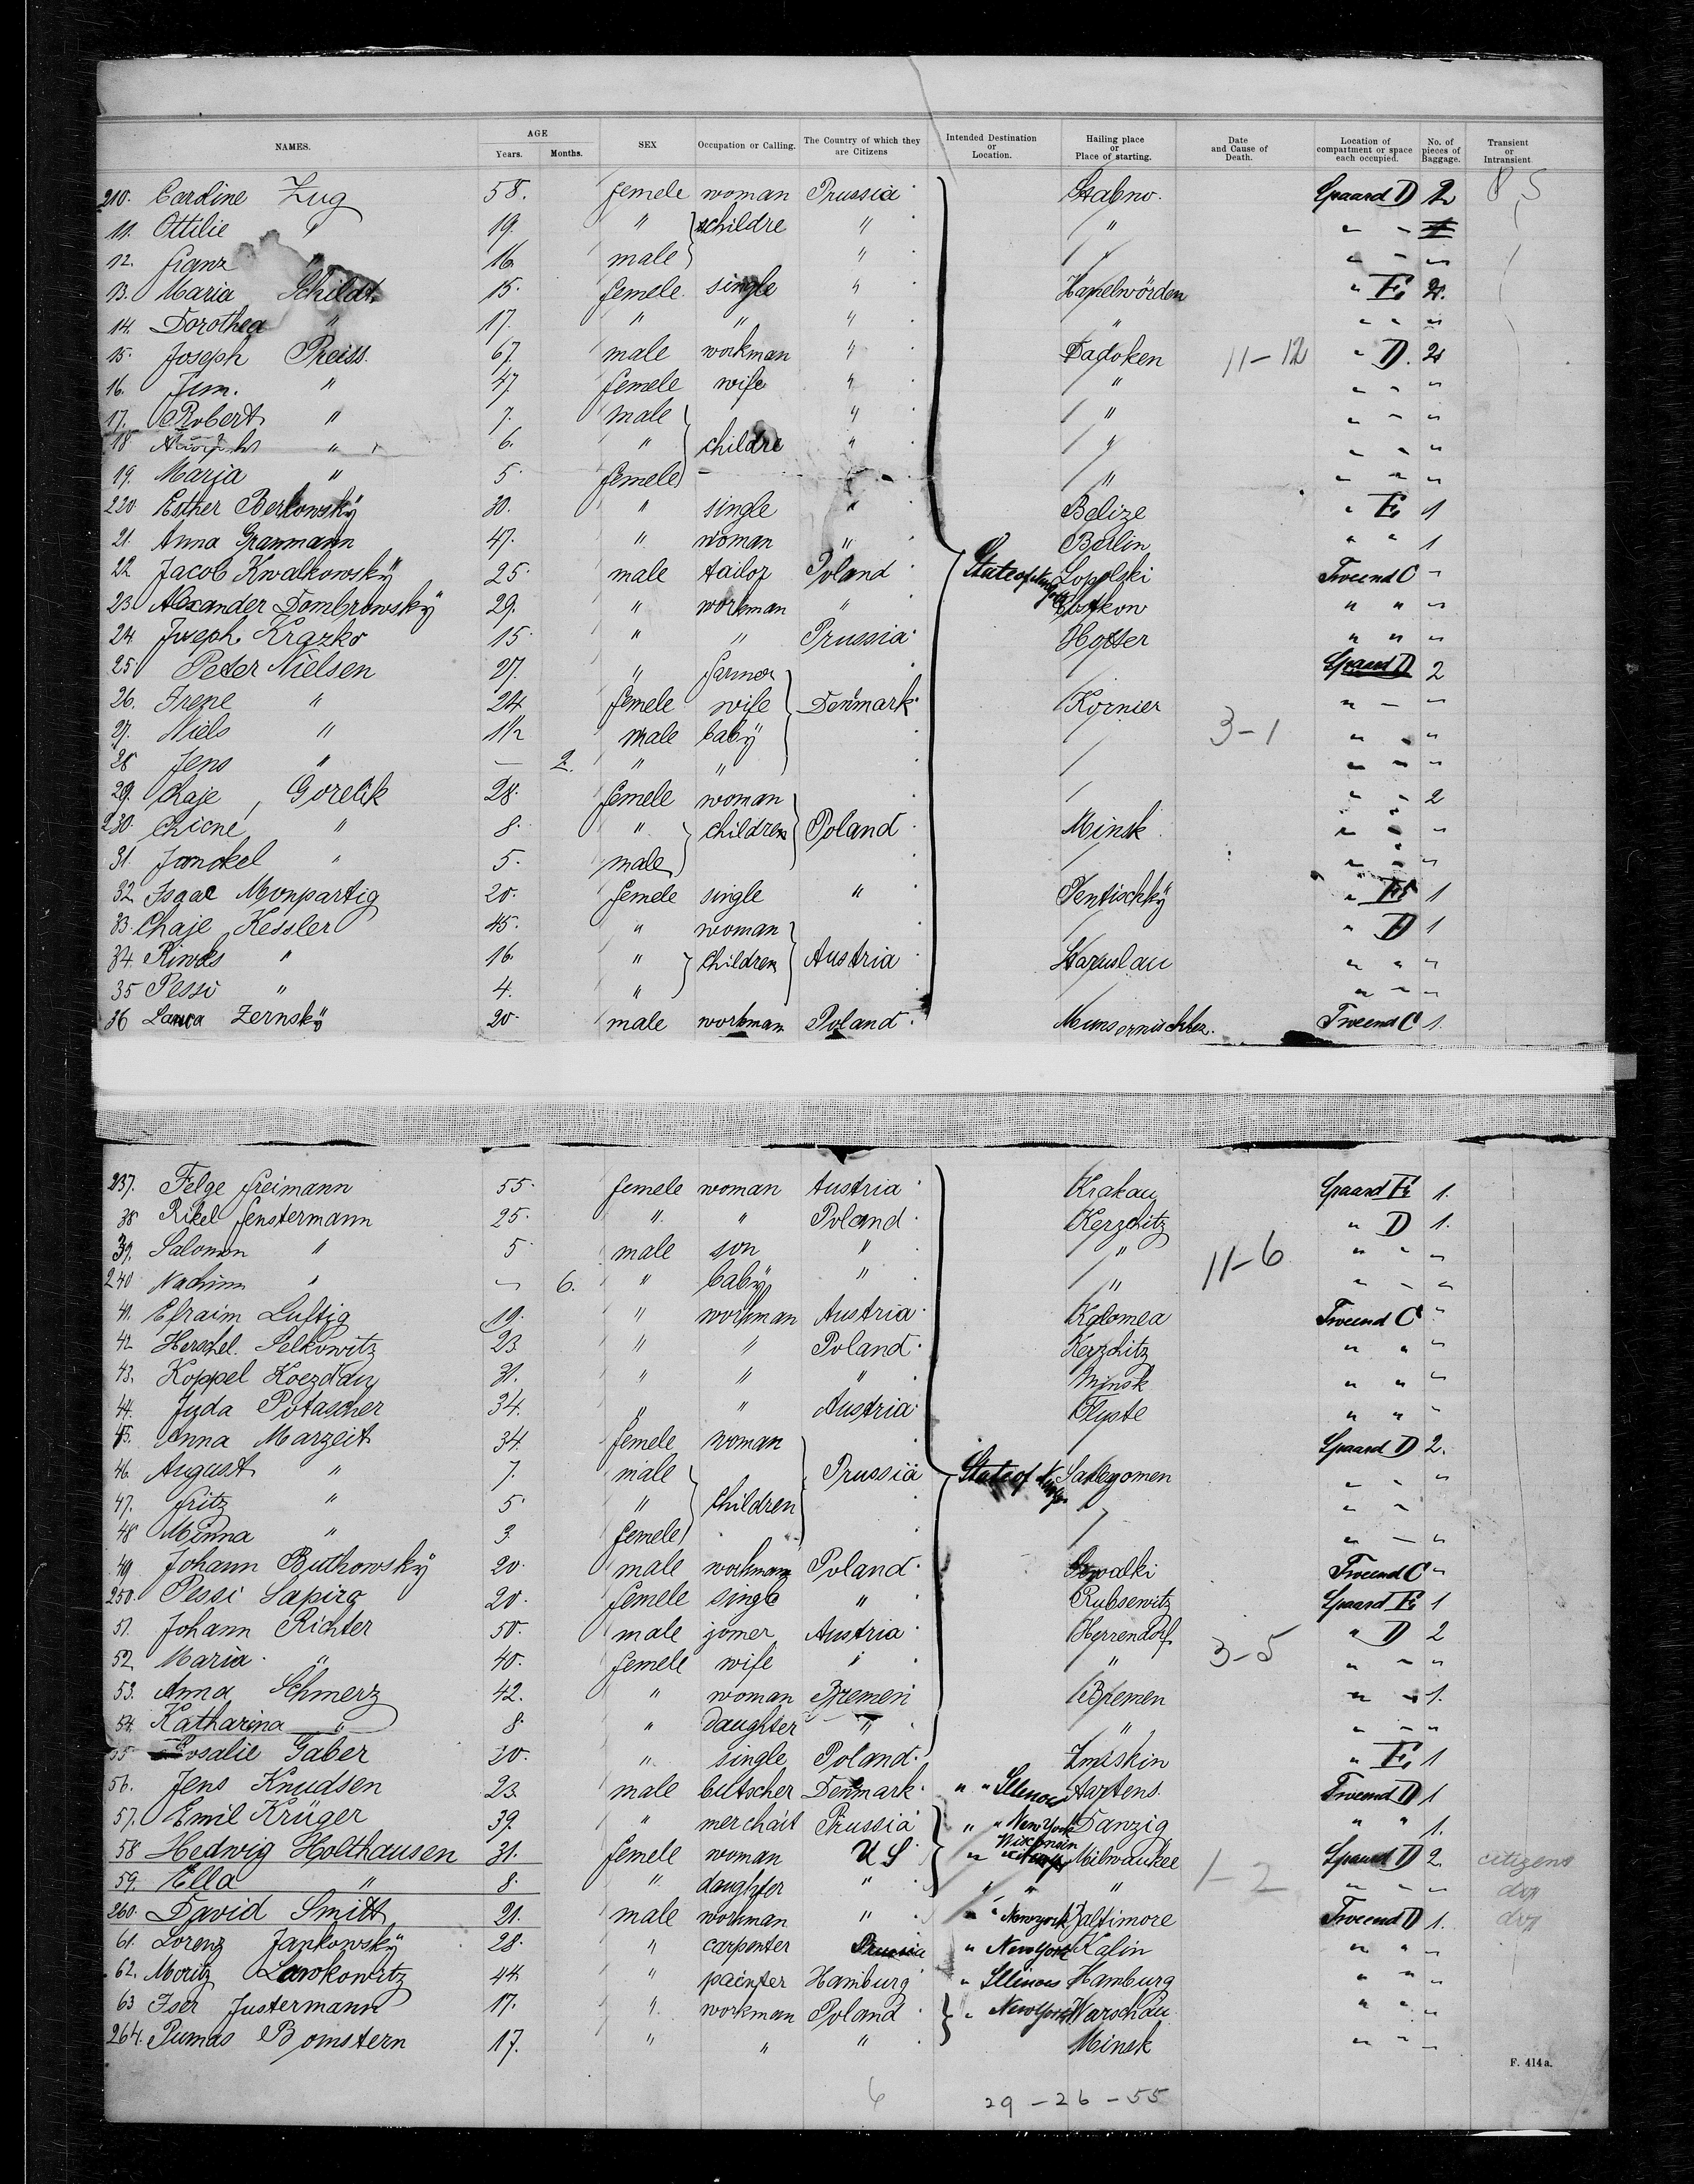 NAMES. AGE Years. Months. SEX Occupation or Calling. The Country of which they are Citizens Intended Destination or Location. Hailing place or Place of starting. Date and Cause of Death. Location of compartment or space each occupied. No. of pieces of Baggage. Transient or Intransient
210. Cardine Zug 58. femele woman Prussia Stabno. Spaard D 2
11. Ottilie " 19. " childre " " " " 1
12. Franz 16. male " " " " "
13. Maria Schildt 15. femele single " Hamelwörden " E 2.
14. Dorothea " 17. " " " " " " "
15. Joseph Preiss. 67. male workman " Dadoken 11-12 " D. 2
16. Jum. " 47. femele wife " " " " "
17. Robert " 7. male " " " " "
18 " 6. " childre " " " " "
19. Marja " 5. femele " " " "
220. Esther Berkowskÿ 30. " single " Belize " E 1
21. Anna Granmann 47. " woman " Berlin " " 1
22 Jacob Kwalkowskÿ 25. male tailor Poland State of New York Lopolski Tweend C "
23. Alexander Dombrowskÿ 29. " workman " " " "
24. Joseph Krazko 15. " " Prussia Hotter " " "
25. Peter Nielsen 27. " farmer Spaard D 2
26. Irene " 24 femele wife Denmark Kornier " " "
27. Niels " 1½ male babÿ 3-1 " " "
28 Jens " — 2. " " " " "
29. Chaje Gorelik 28. femele woman " " 2
230. Chiene " 8. " children Poland Minsk " " "
31. Jankel " 5. male " " "
32. Isaac Monpartig 20. femele single " Pentischkÿ " E 1
33. Chaje Kessler 45. " woman " D 1
34. Riwes " 16. " children Austria Staruslau " " "
35 Pessi " 4. " " " "
36 Zernskÿ 20. male workman Poland Tweend C 1.
237. Felge Freimann 55. femele woman Austria Krakau Spaard E 1.
38 Rikel Fenstermann 25. " " Poland Kerzditz " D 1.
39. Salomon " 5 male son " " 11-6 " " "
240 Nachim " — 6. " babÿ " " " " "
41. Efraim Luftig 19. " workman Austria Kolomea Tweend C "
42. Herschel Selkowitz 23. " " Poland Kerzditz " " "
43. Koppel Koezdau 31. " " " Minsk " " "
44. Juda Potascher 34. " " Austria Tlyste " " "
45. Anna Marzeit 34. femele woman Spaard D 2.
46. August " 7. male Prussia State of New York " " "
47. Fritz " 5. " children " "
48 Minna " 3 femele " " "
49 Johann Buthowskÿ 20. male workman Poland Suwalki Tweend C "
250. Pessi Sapira 20. femele single " Rubsewitz Spaard E 1
51. Johann Richter 50. male jomer Austria Herrendorf " D 2
52. Maria " 40. femele wife " " 3-5 " " "
53. Anna Schmerz 42. " woman Bremen Bremen " " 1.
54. Katharina " 8. " daughter " " " " "
55 Rosalie Gaber 20. " single Poland Imiskin " E 1
56. Jens Knudsen 23. male butscher Denmark " " Illinois Aartens. Tweend D 1
57. Emil Krüger 39. " merchait Prussia " " New York Danzig " " 1.
58 Hedwig Holthausen 31. femele woman US " Wikonsin Milwaukee Spaard D 2. citizens
59. Ella " 8. " daughter " " " " 1-2 " " " do
260. David Smitt 21. male workman " " " New york Baltimore Tweend D 1. do
61. Lorenz Jankowskÿ 28. " carpenter Prussia " New York Kalin " " "
62. Moritz Lawkowitz 44 " painter Hamburg " Illinois Hamburg " " "
63 Iser Justermann 17. " workman Poland " New York Warschau " " "
264. Pumas Bomstern 17. " " " Minsk " " "
F. 414 a.
6 29-26-55